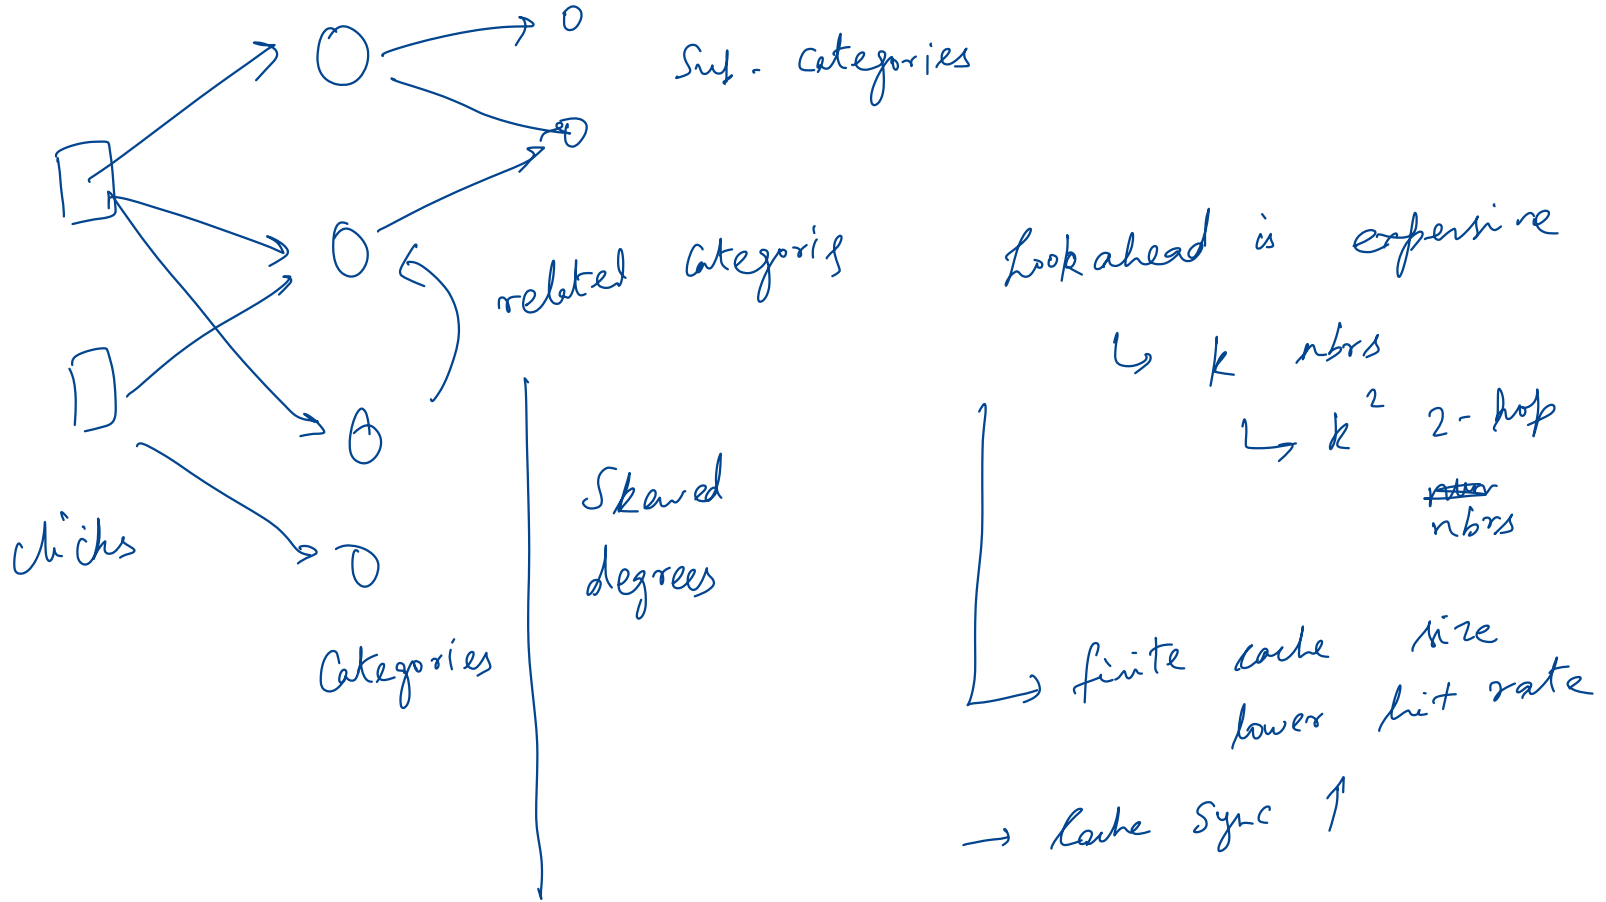 Sub - Categories
related Categoris
clicks
Categories
Skewed
degrees
Lookahead is expensive
k nbrs
k² 2-hop
nbrs
finite cache size
lower hit rate
Cache Sync ↑